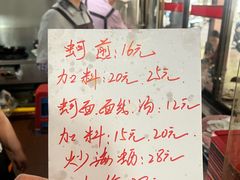 蚵煎:16元
加料:20元 25元
蚵面.面线.汤:12元
加料:15元.20元.
炒满粄:28元